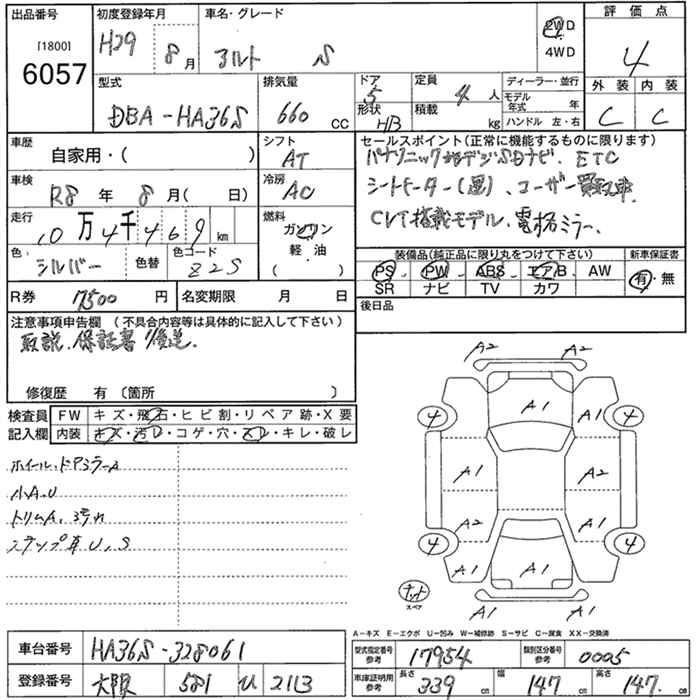 出品番号 初度登録年月 車名・グレード 評価点
[1800]
6057
H29 8月 アルト S 2WD 4WD 4
型式 排気量 ドア 定員 ディーラー・並行 外装 内装
DBA-HA36S 660 cc 5 4人 モデル年式 年 C C
形状 積載 ハンドル 左・右
HB kg
車歴 シフト セールスポイント(正常に機能するものに限ります)
自家用・( ) AT
パナソニック地デジSDナビ、ETC
車検 冷房 シートヒーター(運)、ユーザー買取車
R8年 8月( 日) AC
CVT搭載モデル、電格ミラー、
走行 燃料
10万4千469km ガソリン
軽・油
( )
色 色替 色コード 装備品(純正品に限り丸をつけて下さい) 新車保証書
シルバー Z2S PS PW ABS エアB AW 有・無
SR ナビ TV カワ
R券 17500円 名変期限 月 日 後日品
注意事項申告欄 (不具合内容等は具体的に記入して下さい)
取説、保証書 後送
修復歴 有 (箇所 )
検査員 FW キズ・飛石・ヒビ割・リペア跡・X要
記入欄 内装 キズ・汚レ・コゲ・穴・スレ・キレ・破レ
ホイール、ドアミラーA
小A.U
トリムA、
ステップ U,S
A2 A2
A1
4 A1 A1 4
A1 A2
A2 A1
4 4
A1 A1 A1
スペア
A1 A1
A-キズ E-エクボ U-凹み W-補修跡 S-サビ C-腐食 XX-交換済
車台番号 HA36S-328061 型式指定番号 参考 17954 類別区分番号 参考 0005
登録番号 大阪 581 い 2113 車庫証明用 参考 長さ 339cm 幅 147cm 高さ 147cm